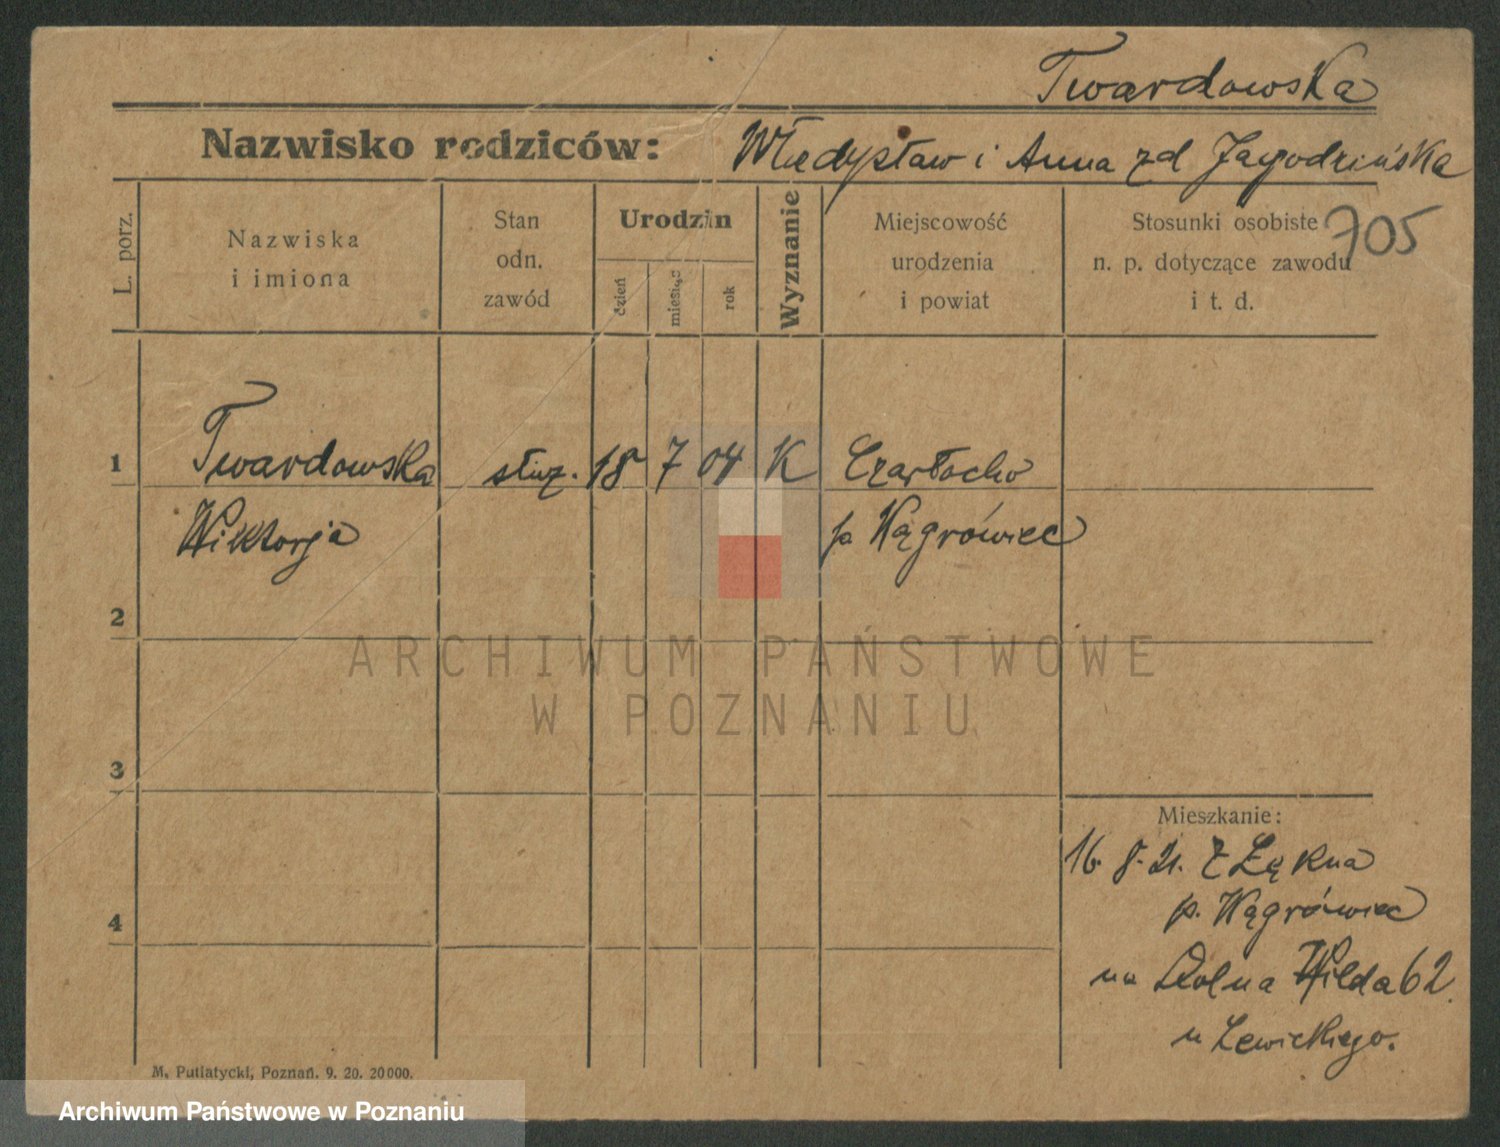 Twardowska
Nazwisko rodziców: Władysław i Anna zd Jagodzińska
L. porz.
Nazwiska
i imiona
Stan
odn.
zawód
Urodzin
dzień
miesiąc
rok
Wyznanie
Miejscowość
urodzenia
i powiat
Stosunki osobiste
n. p. dotyczące zawodu
i t. d.
705
1 Twardowska służ. 18 7 04 K Czarłocho
Wiktorja p. Wągrówiec
2
ARCHIWUM PAŃSTWOWE
W POZNANIU
3
Mieszkanie:
16. 8. 21. Z Łękna
p. Wągrówiec
4
na Dolna Wilda 62.
u Lewickiego.
M. Putiatycki, Poznań. 9. 20. 20000.
Archiwum Państwowe w Poznaniu